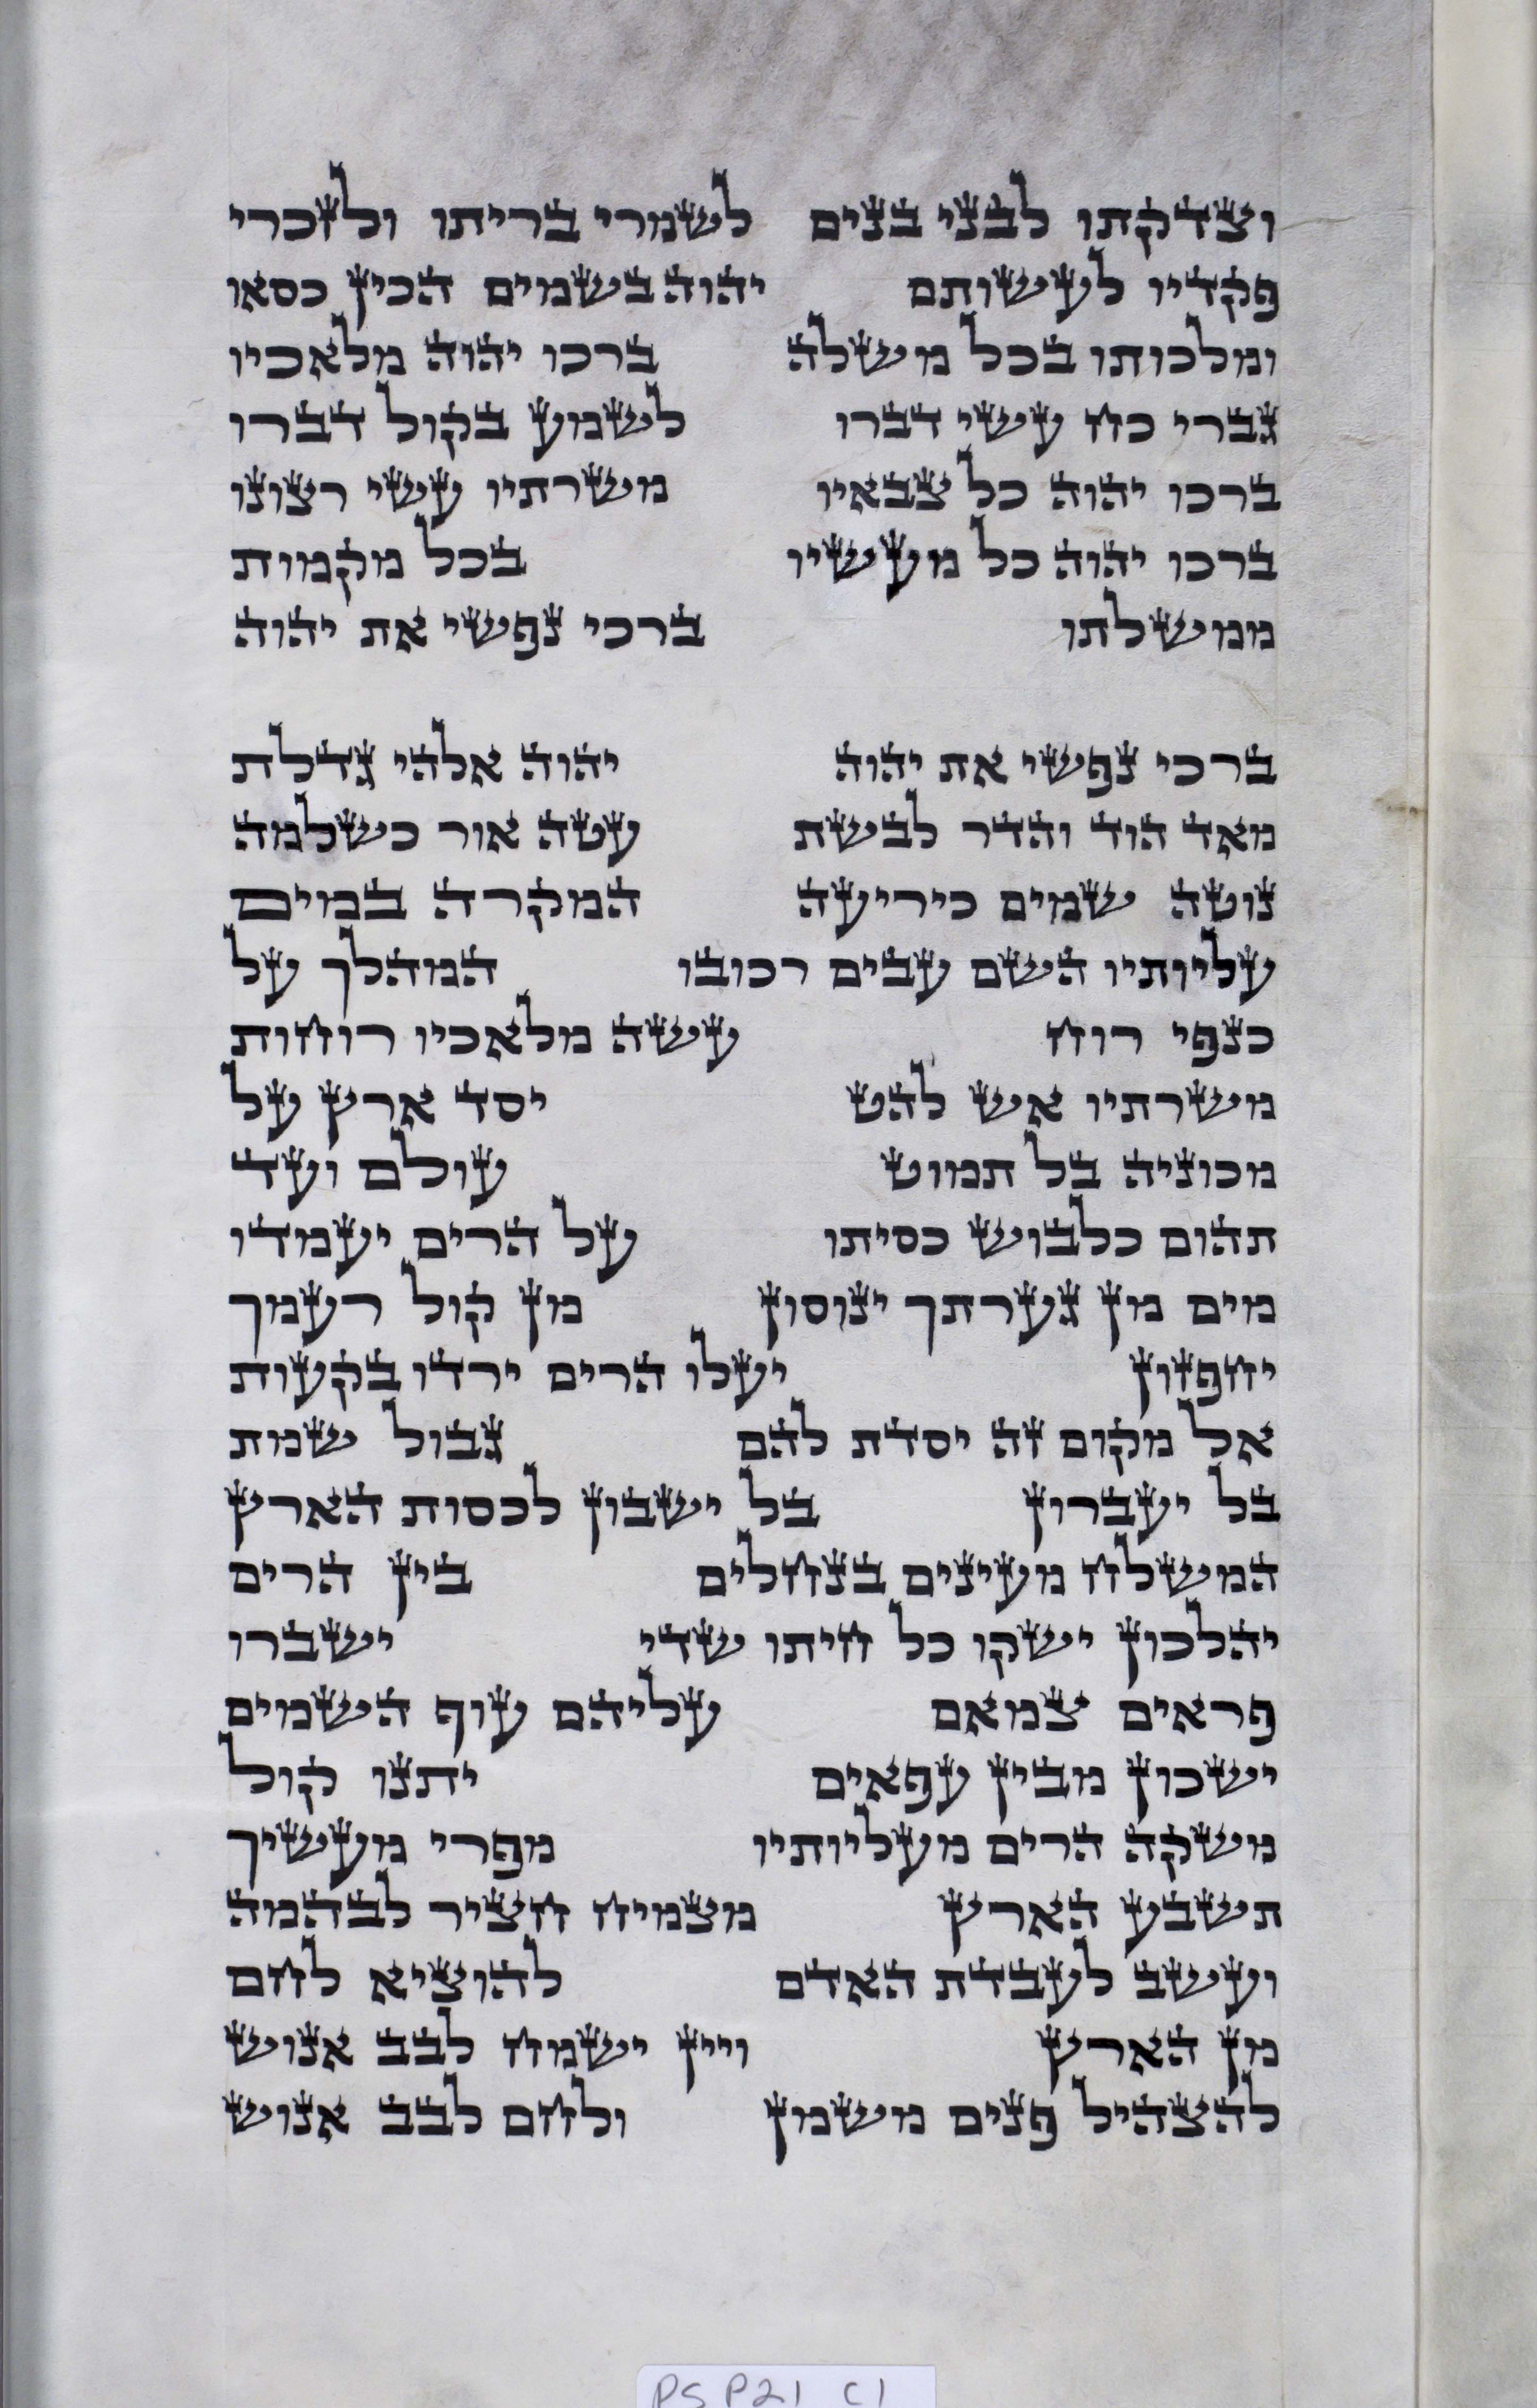 וצדקתו לבני בנים לשמרי בריתו ולזכרי
פקדיו לעשותם יהוה בשמים הכין כסאו
ומלכותו בכל משלה ברכו יהוה מלאכיו
גברי כח עשי דברו לשמע בקול דברו
ברכו יהוה כל צבאיו משרתיו עשי רצונו
ברכו יהוה כל מעשיו בכל מקמות
ממשלתו ברכי נפשי את יהוה
ברכי נפשי את יהוה יהוה אלהי גדלת
מאד הוד והדר לבשת עטה אור כשלמה
נוטה שמים כיריעה המקרה במים
עליותיו השם עבים רכובו המהלך על
כנפי רוח עשה מלאכיו רוחות
משרתיו אש להט יסד ארץ על
מכוניה בל תמוט עולם ועד
תהום כלבוש כסיתו על הרים יעמדו
מים מן גערתך ינוסון מן קול רעמך
יחפזון יעלו הרים ירדו בקעות
אל מקום זה יסדת להם גבול שמת
בל יעברון בל ישבון לכסות הארץ
המשלח מעינים בנחלים בין הרים
יהלכון ישקו כל חיתו שדי ישברו
פראים צמאם עליהם עוף השמים
ישכון מבין עפאים יתנו קול
משקה הרים מעליותיו מפרי מעשיך
תשבע הארץ מצמיח חציר לבהמה
ועשב לעבדת האדם להוציא לחם
מן הארץ ויין ישמח לבב אנוש
להצהיל פנים משמן ולחם לבב אנוש
PS P21 C1